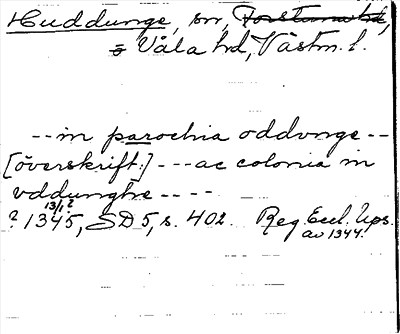 Huddunge, sn, Torstuna hd,
= Våla hd, Västm. l.
-- in parochia oddvnge --
[överskrift:] --- ac colonia in
vddunghe ----
13/1 ?
? 1345, SD 5, s. 402. Reg. Eccl. Ups.
av 1344.